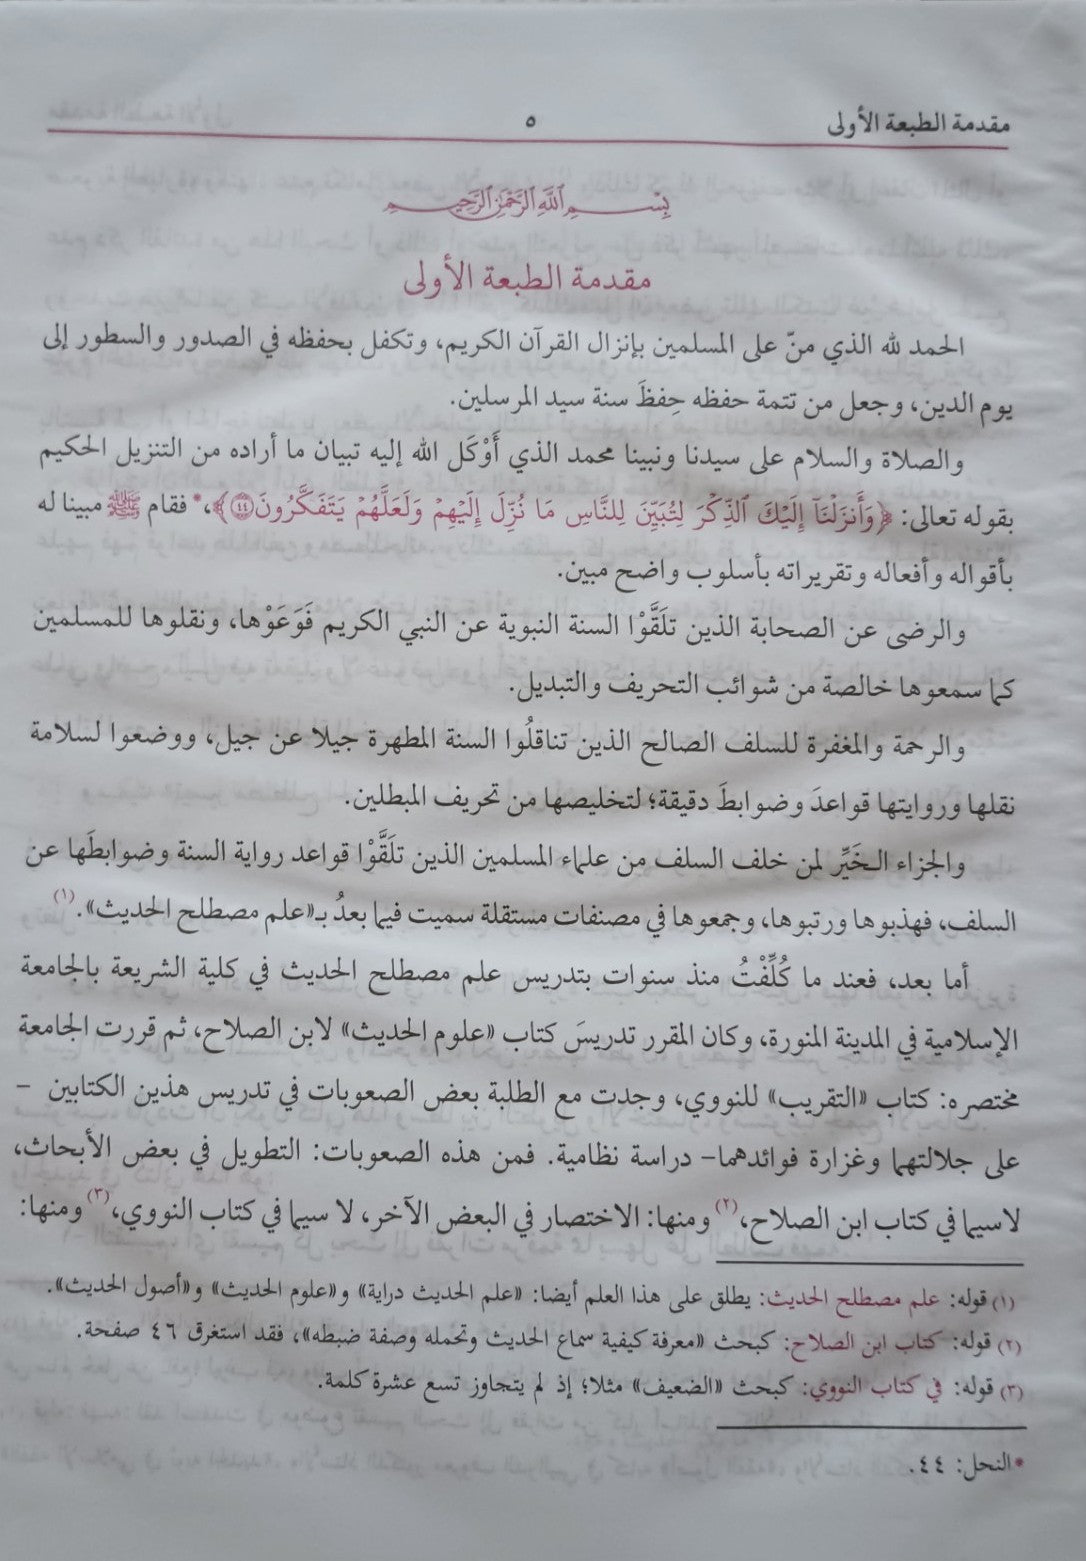 مقدمة الطبعة الأولى ٥
بِسْمِ ٱللَّهِ ٱلرَّحْمَٰنِ ٱلرَّحِيمِ
مقدمة الطبعة الأولى
الحمد لله الذي منّ على المسلمين بإنزال القرآن الكريم، وتكفل بحفظه في الصدور والسطور إلى
يوم الدين، وجعل من تتمة حفظه حِفظَ سنة سيد المرسلين.
والصلاة والسلام على سيدنا ونبينا محمد الذي أَوْكَل الله إليه تبيان ما أراده من التنزيل الحكيم
بقوله تعالى: ﴿وَأَنزَلْنَآ إِلَيْكَ ٱلذِّكْرَ لِتُبَيِّنَ لِلنَّاسِ مَا نُزِّلَ إِلَيْهِمْ وَلَعَلَّهُمْ يَتَفَكَّرُونَ ٤٤﴾،* فقام ﷺ مبينا له
بأقواله وأفعاله وتقريراته بأسلوب واضح مبين.
والرضى عن الصحابة الذين تلَقَّوْا السنة النبوية عن النبي الكريم فَوَعَوْها، ونقلوها للمسلمين
كما سمعوها خالصة من شوائب التحريف والتبديل.
والرحمة والمغفرة للسلف الصالح الذين تناقلُوا السنة المطهرة جيلا عن جيل، ووضعوا لسلامة
نقلها وروايتها قواعدَ وضوابطَ دقيقة؛ لتخليصها من تحريف المبطلين.
والجزاء الـخَيِّر لمن خلف السلف من علماء المسلمين الذين تلَقَّوْا قواعد رواية السنة وضوابطَها عن
السلف، فهذبوها ورتبوها، وجمعوها في مصنفات مستقلة سميت فيما بعدُ بـ«علم مصطلح الحديث».(١)
أما بعد، فعند ما كُلِّفْتُ منذ سنوات بتدريس علم مصطلح الحديث في كلية الشريعة بالجامعة
الإسلامية في المدينة المنورة، وكان المقرر تدريسَ كتاب «علوم الحديث» لابن الصلاح، ثم قررت الجامعة
مختصره: كتاب «التقريب» للنووي، وجدت مع الطلبة بعض الصعوبات في تدريس هذين الكتابين –
على جلالتهما وغزارة فوائدهما– دراسة نظامية. فمن هذه الصعوبات: التطويل في بعض الأبحاث،
لاسيما في كتاب ابن الصلاح،(٢) ومنها: الاختصار في البعض الآخر، لا سيما في كتاب النووي،(٣) ومنها:
(١) قوله: علم مصطلح الحديث: يطلق على هذا العلم أيضا: «علم الحديث دراية» و«علوم الحديث» و«أصول الحديث».
(٢) قوله: كتاب ابن الصلاح: كبحث «معرفة كيفية سماع الحديث وتحمله وصفة ضبطه»، فقد استغرق ٤٦ صفحة.
(٣) قوله: في كتاب النووي: كبحث «الضعيف» مثلا؛ إذ لم يتجاوز تسع عشرة كلمة.
*النحل: ٤٤.